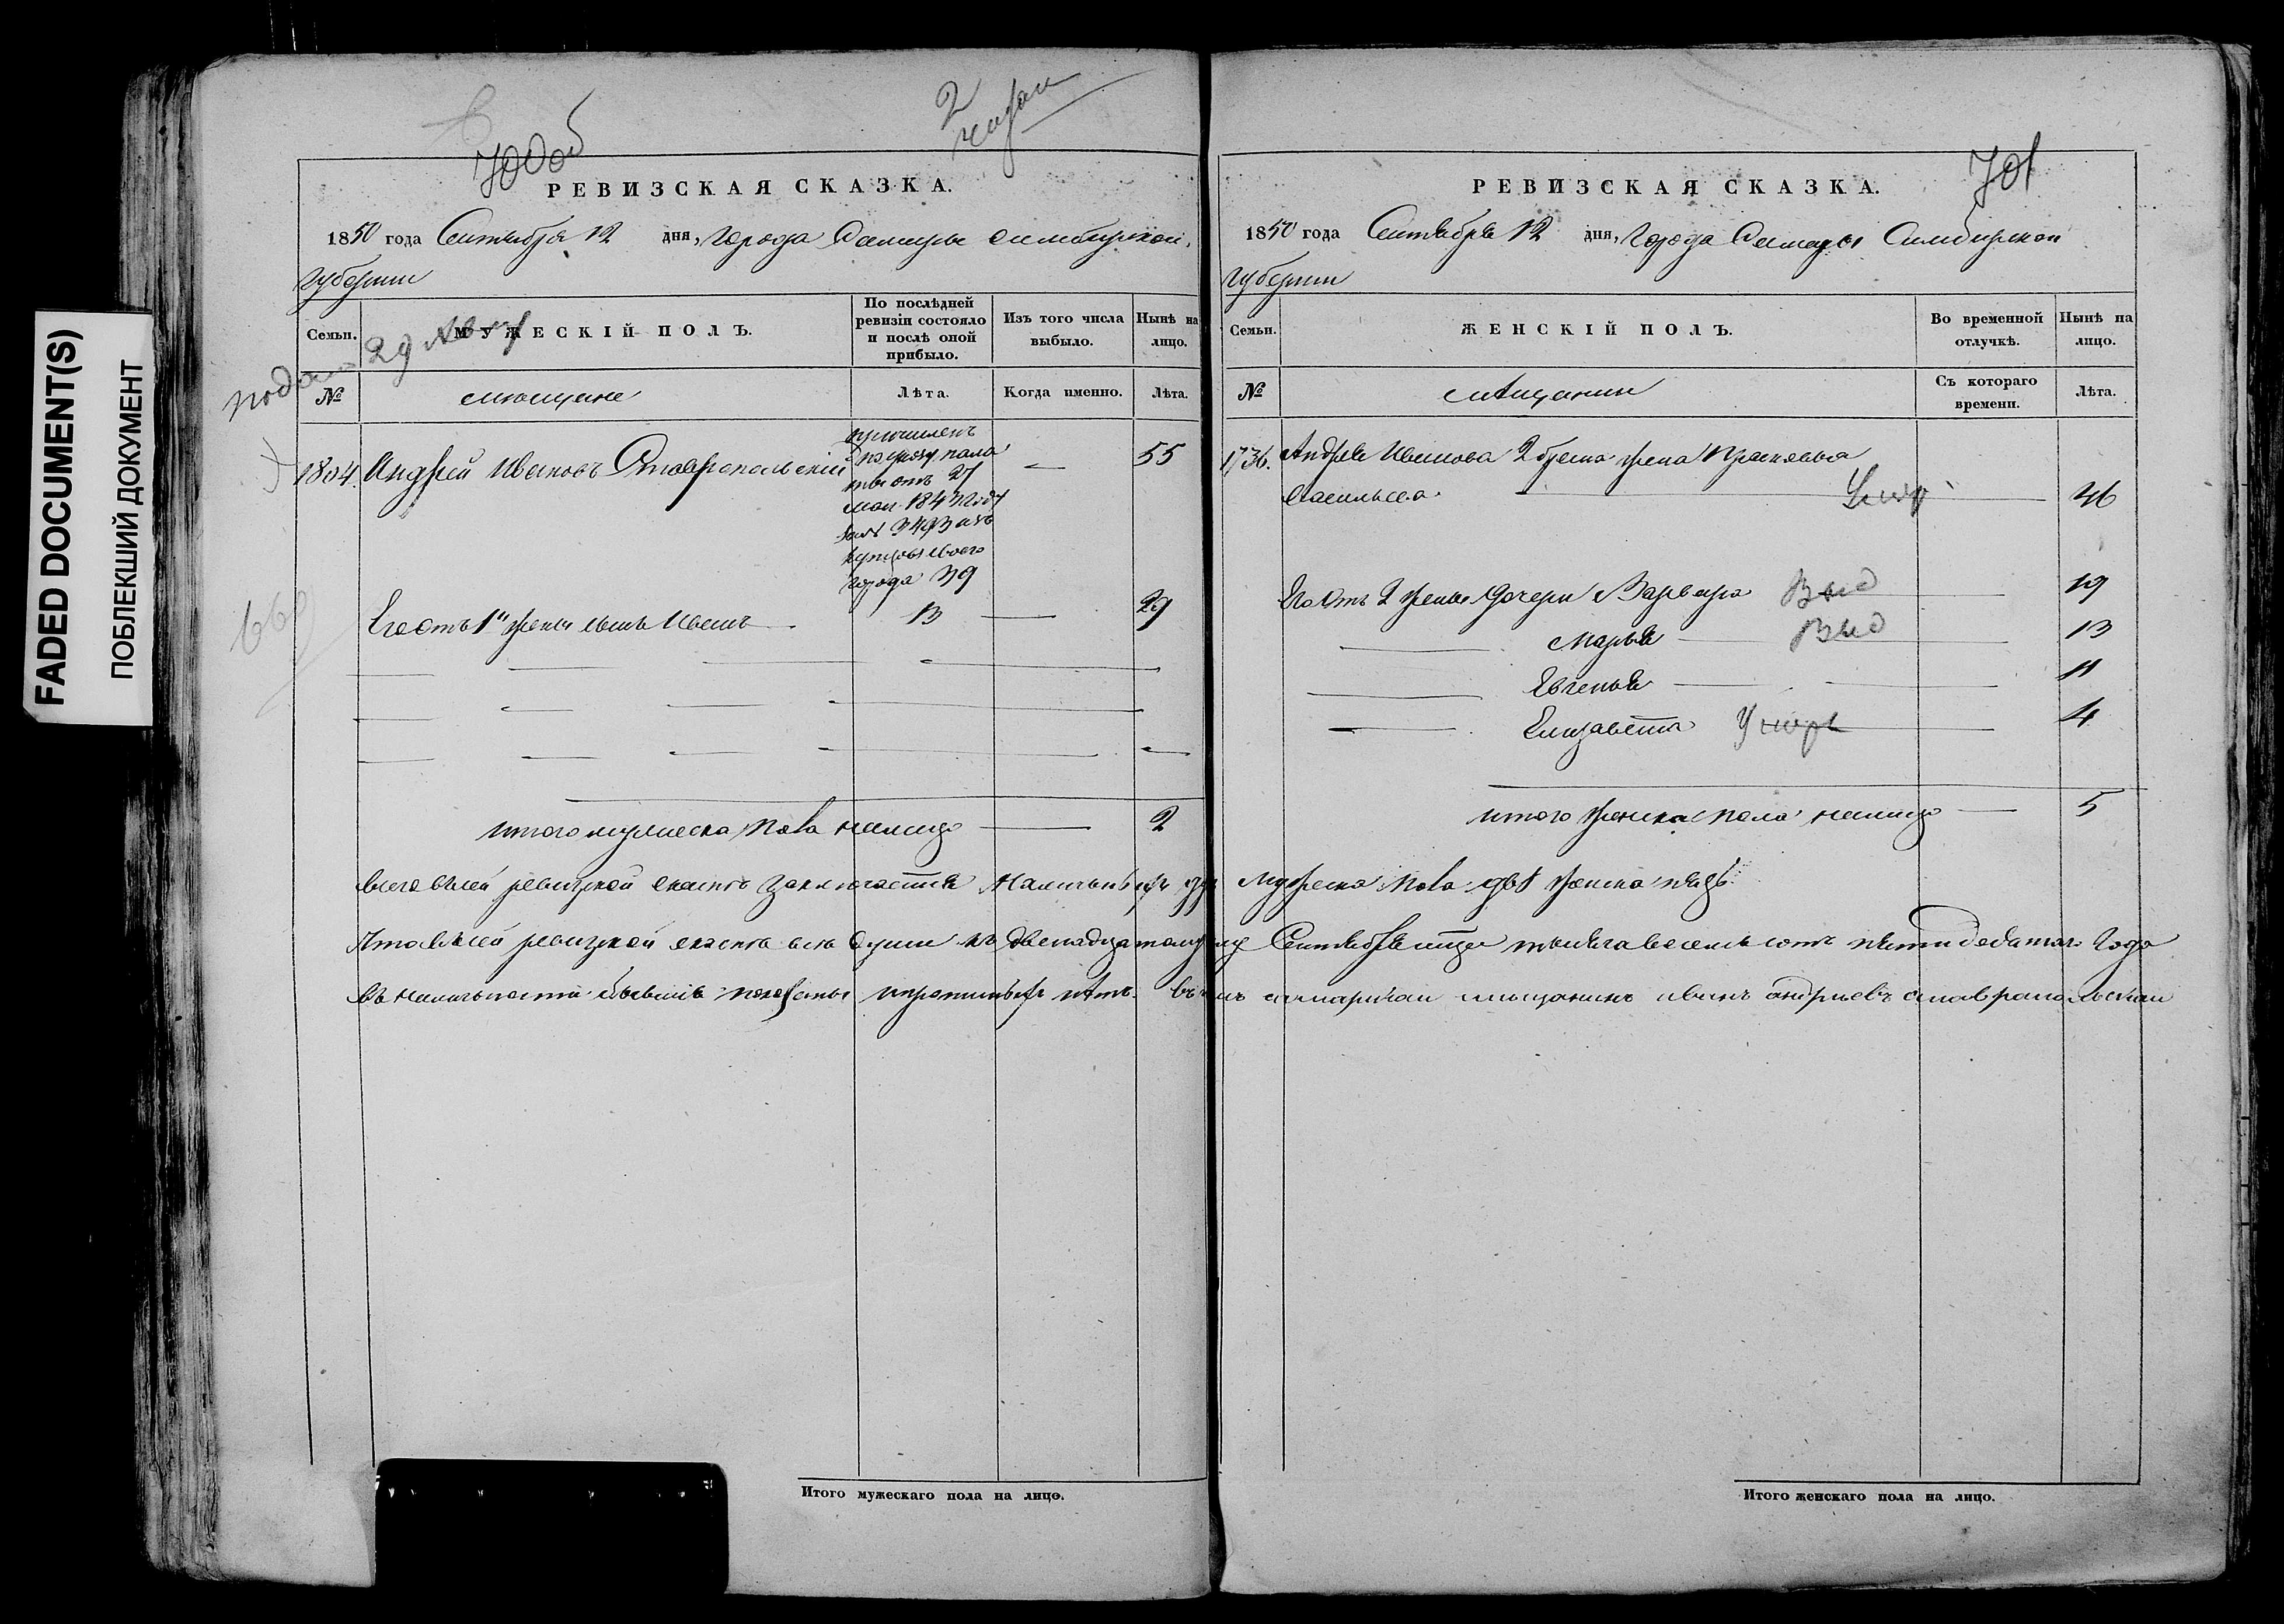 FADED DOCUMENT(S)
ПОБЛЕКШИЙ ДОКУМЕНТ
700об
2
РЕВИЗСКАЯ СКАЗКА.
1850 года Сентября 12 дня, Города Самары Симбирской
губернии
Семьи.
МУЖЕСКІЙ ПОЛЪ.
По послѣдней ревизіи состояло и послѣ оной прибыло.
Изъ того числа выбыло.
Нынѣ на лицо.
подана 29 Авгу
№
мющане
Лѣта.
Когда именно.
Лѣта.
1804. Андрей Ивановъ Ставропольскій
причисленъ
по указу пала
ты отъ 27
мая 1843 году
3493 изъ
купцовъ своего
города 39
55
Его отъ 1й жены сынъ Иванъ 13 29
итого мужеска пола налицо 2
Итого мужескаго пола на лицо.
701
РЕВИЗСКАЯ СКАЗКА.
1850 года Сентября 12 дня, Города Самары Симбирской
губернии
Семьи.
ЖЕНСКІЙ ПОЛЪ.
Во временной отлучкѣ.
Нынѣ на лицо.
№
мѣщанки
Съ котораго времени.
Лѣта.
1736. Андрея Иванова 2 брака жена Прасковья
Васильева Умер 46
Его Отъ 2 жены дочери Варвара Выд 19
Марья Выд 13
Евгенья 11
Елизавета Умерл 4
итого женска пола налицо 5
Всего въ сей ревизской сказке заключается Наличныхъ душ Мужеска пола двѣ женска пять
Что въ сей ревизской сказке все души къ двенадцатому Сентября тысяча восемь сотъ пятидесятаго Года
въ наличности бывшие показаны и прописныхъ нѣтъ. въ чем самарской мещанинъ иванъ андриевъ ставропольскай
Итого женскаго пола на лицо.